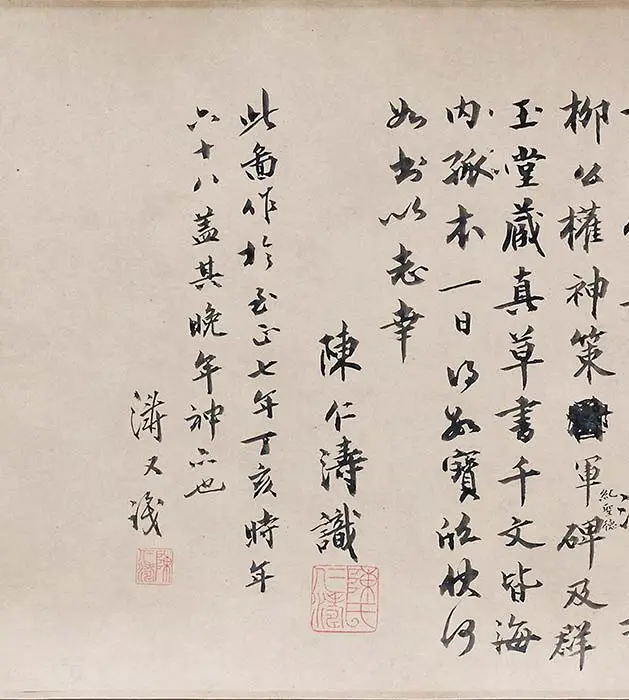 柳公權神策軍碑及群
紀聖德
玉堂藏真草書千文皆海
内孤本一日得數寶欣快何
如書以志幸
陳仁濤識
陳氏仁濤
此圖作於至正七年丁亥時年
六十八蓋其晚年神品也
濤又識
陳仁濤